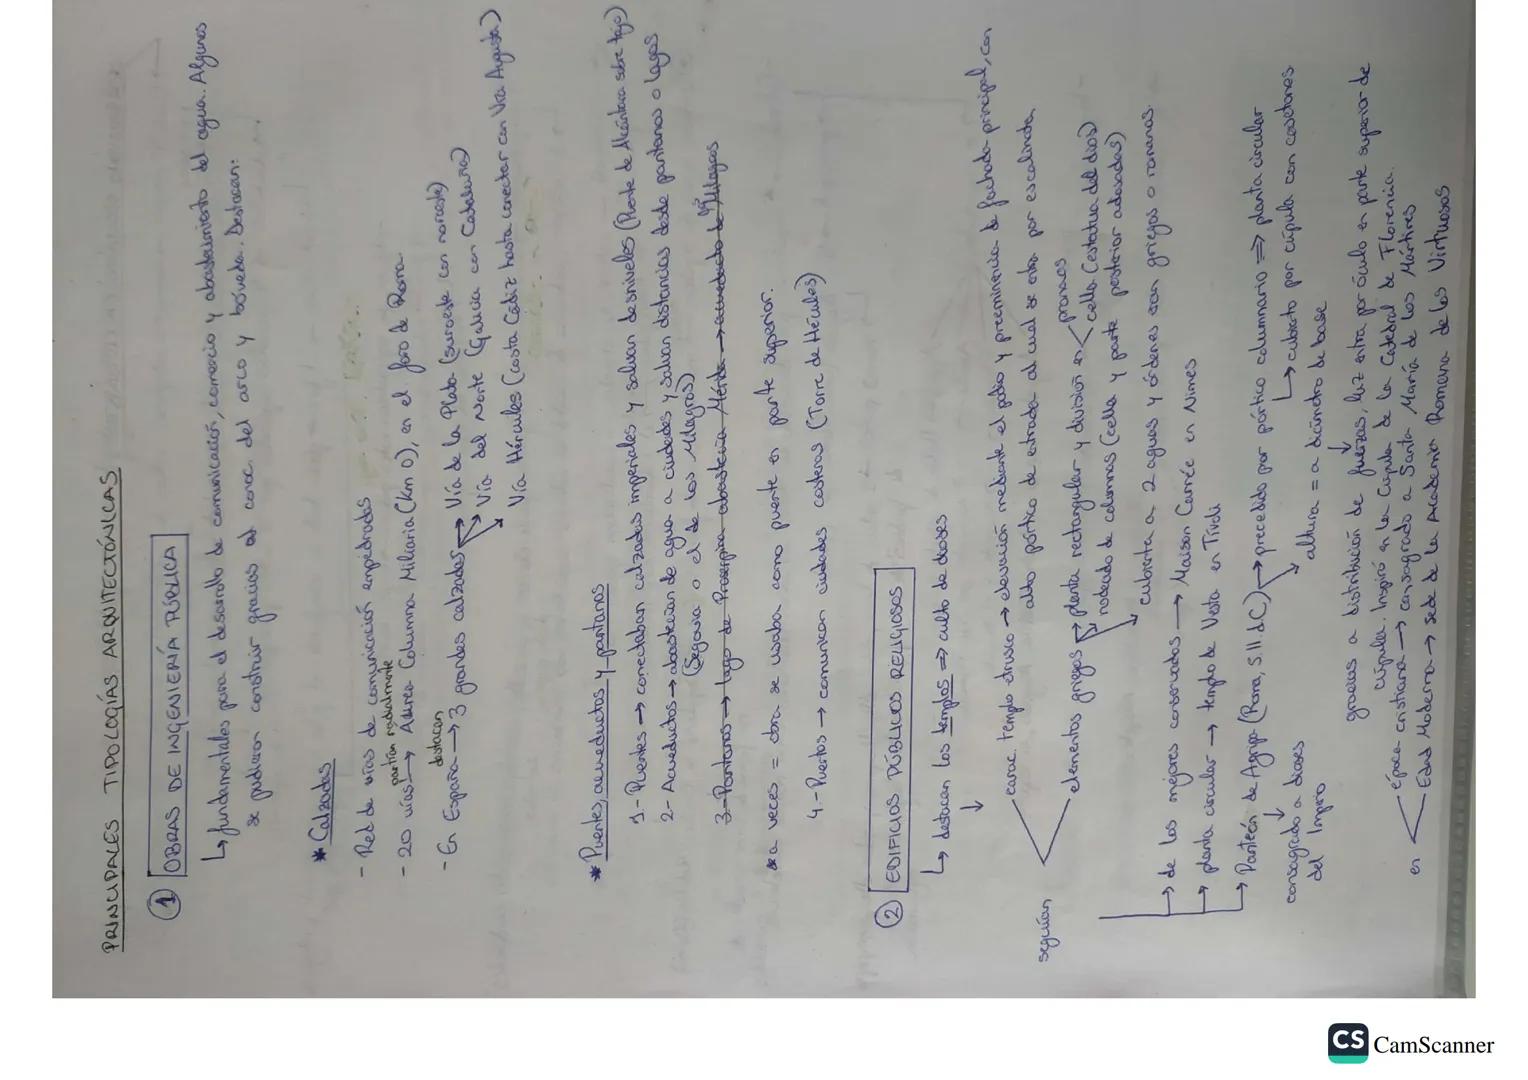 PRINCIPALES TIPOLOGÍAS ARQUITECTÓNICAS
① OBRAS DE INGENIERÍA PÚBLICA
↳ fundamentales para el desarrollo de comunicación, comercio y abastecimiento del agua. Algunas
se pudieron construir gracias al conoc. del arco y bóveda. Destacan:
* Calzadas
- Red de vías de comunicación empedradas
partían radialmente
- 20 vías → Aurea Columna Miliaria (km 0), en el foro de Roma
destacan
- En España → 3 grandes calzadas → Vía de la Plata (suroeste con noroeste)
Vía del Norte (Galicia con Cataluña)
Vía Hércules (costa Cádiz hasta conectar con Vía Augusta)
* Puentes, acueductos y pantanos
1- Puentes → conectaban calzadas imperiales y salvan desniveles (Puente de Alcántara sobre Tajo)
2- Acueductos → abastecían de agua a ciudades y salvan distancias desde pantanos o lagos
(Segovia o el de los Milagros)
3- Pantanos → Lago de Proserpina abastecía Mérida → acueducto de los Milagros
a veces = obra se usaba como puente en parte superior.
4.- Puertos → comunican ciudades costeras (Torre de Hércules)
② EDIFICIOS PÚBLICOS RELIGIOSOS
↳ destacan los templos ⇒ culto de dioses
↓
seguían
carac. templo etrusco → elevación mediante el podio y preeminencia de fachada principal, con
alto pórtico de entrada al cual se entra por escalinata
elementos griegos → planta rectangular y división en < pronaos
cella (estatua del dios)
rodeado de columnas (cella y parte posterior adosadas)
↳ cubierta a 2 aguas y órdenes eran griegos o romanos.
→ de los mejores conservados → Maison Carrée en Nimes
→ planta circular → templo de Vesta en Tívoli
→ Panteón de Agripa (Roma, s. II d.C) → precedido por pórtico columnario ⇒ planta circular
↳ cubierto por cúpula con casetones
altura = a diámetro de base
↓
consagrado a dioses
del Imperio
gracias a distribución de fuerzas, luz entra por óculo en parte superior de
cúpula. Inspiró en la Cúpula de la Catedral de Florencia.
en < época cristiana → consagrado a Santa María de los Mártires
Edad Moderna → sede de la Academia Romana de los Virtuosos
CS CamScanner